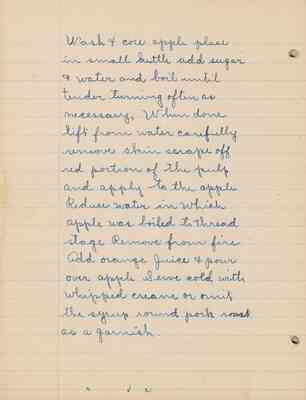 Wash & core apple place
in small kettle add sugar
& water and boil until
tender turning often as
necessary. When done
lift from water carefully
remove skin scrape off
red portion of the pulp
and apply to the apple
Reduce water in which
apple was boiled to thread
stage Remove from fire
Add orange Juice & pour
over apple Serve cold with
whipped creane or omit
the syrup round pork roast
as a garnish.